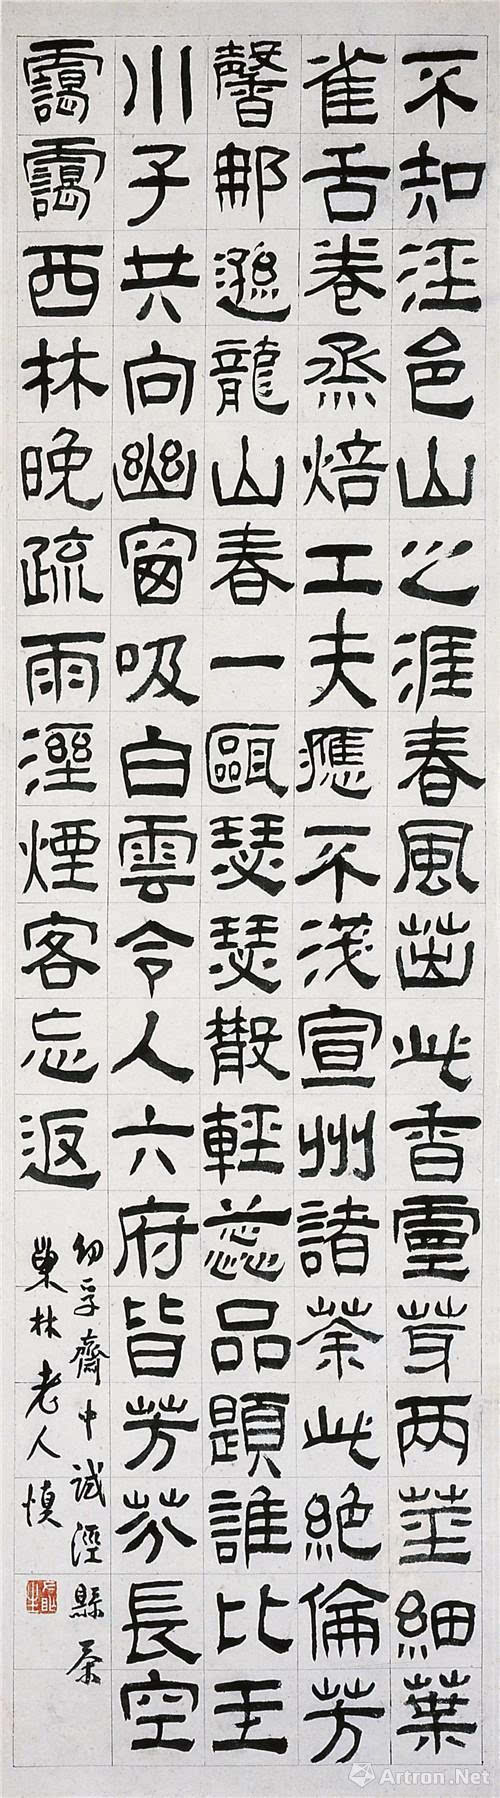 不知涇邑山之涯春風茁此香靈芽兩莖細葉
雀舌卷烝焙工夫應不淺宣州諸茶此絕倫芳
馨那遜龍山春一甌瑟瑟散輕蕊品題誰比玉
川子共向幽窗吸白雲令人六府皆芳芬長空
靄靄西林晚疏雨溼煙客忘返
幼孚齋中試涇縣茶
巢林老人慎
Artron.Net